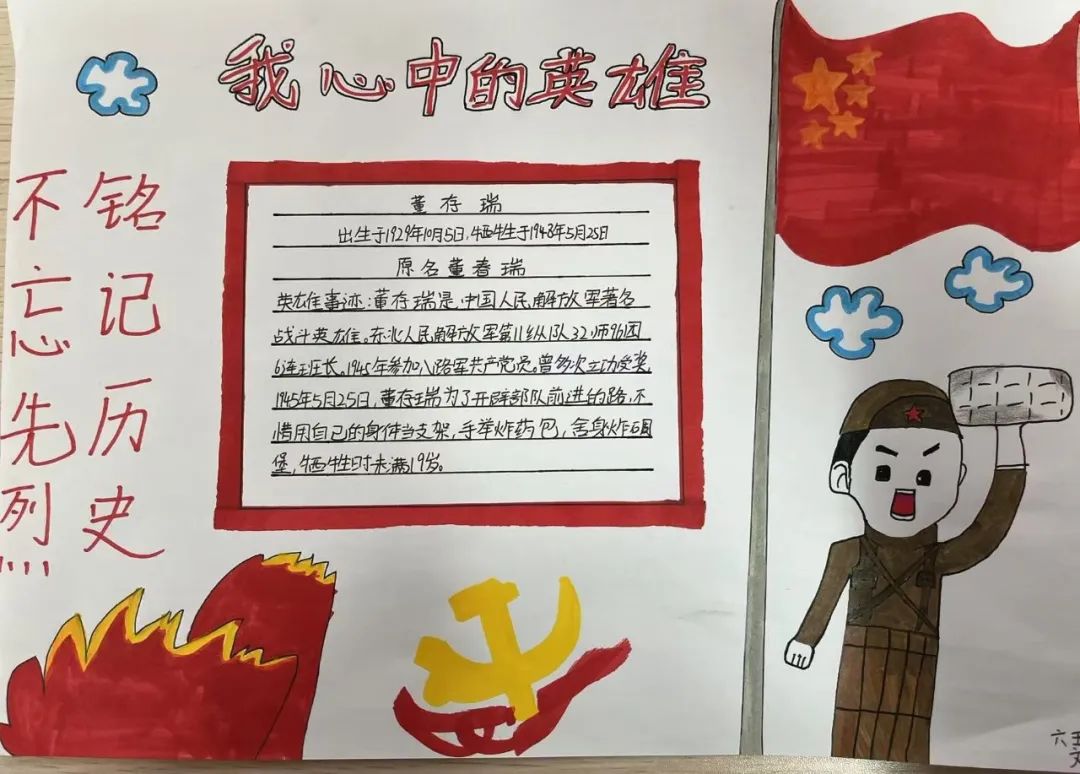 我心中的英雄
铭记历史
不忘先烈
董存瑞
出生于1929年10月5日,牺牲于1948年5月25日
原名董春瑞
英雄事迹:董存瑞是中国人民解放军著名
战斗英雄。东北人民解放军第11纵队32师96团
6连班长。1945年参加八路军共产党员。曾多次立功受奖
1945年5月25日,董存瑞为了开辟部队前进的路,不
惜用自己的身体当支架,手举炸药包,舍身炸碉
堡,牺牲时未满19岁。